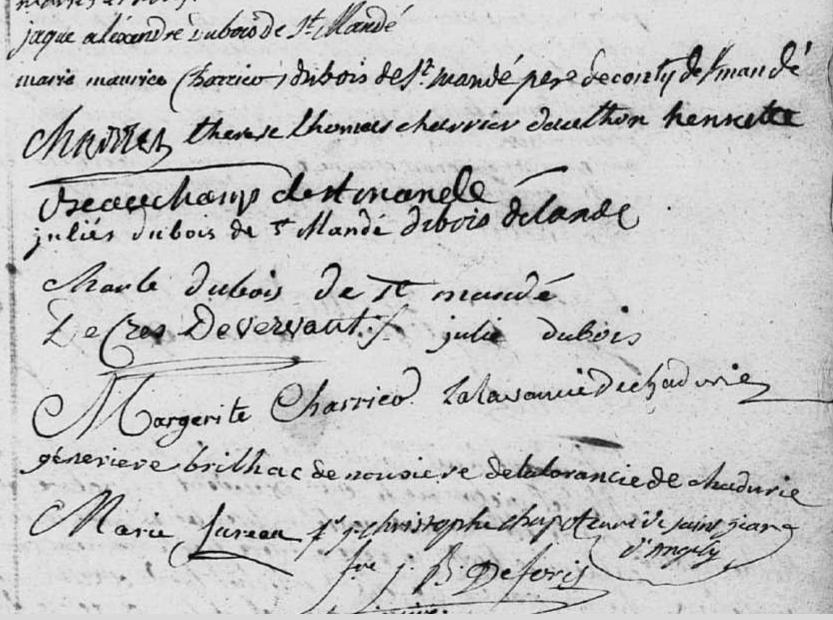 jaque aléxandre Dubois de St Mandé
marie maurice Charrier dubois de St mandé pere deconty de St mandé
Charrier therese thomas charrier dauthon henriette
Beauchamp de st mande
juliés dubois de St Mandé dubois délande
Charle dubois de St mandé
De Cres De vervant julie dubois
Margerite Charrier Lalaurancie De chadurie
généviève brilhac de nousiere de lalorancie de chadurie
Marie fureau fr j christophe chapot curé de saint jean
d'Angely
fre j. B. Deforis